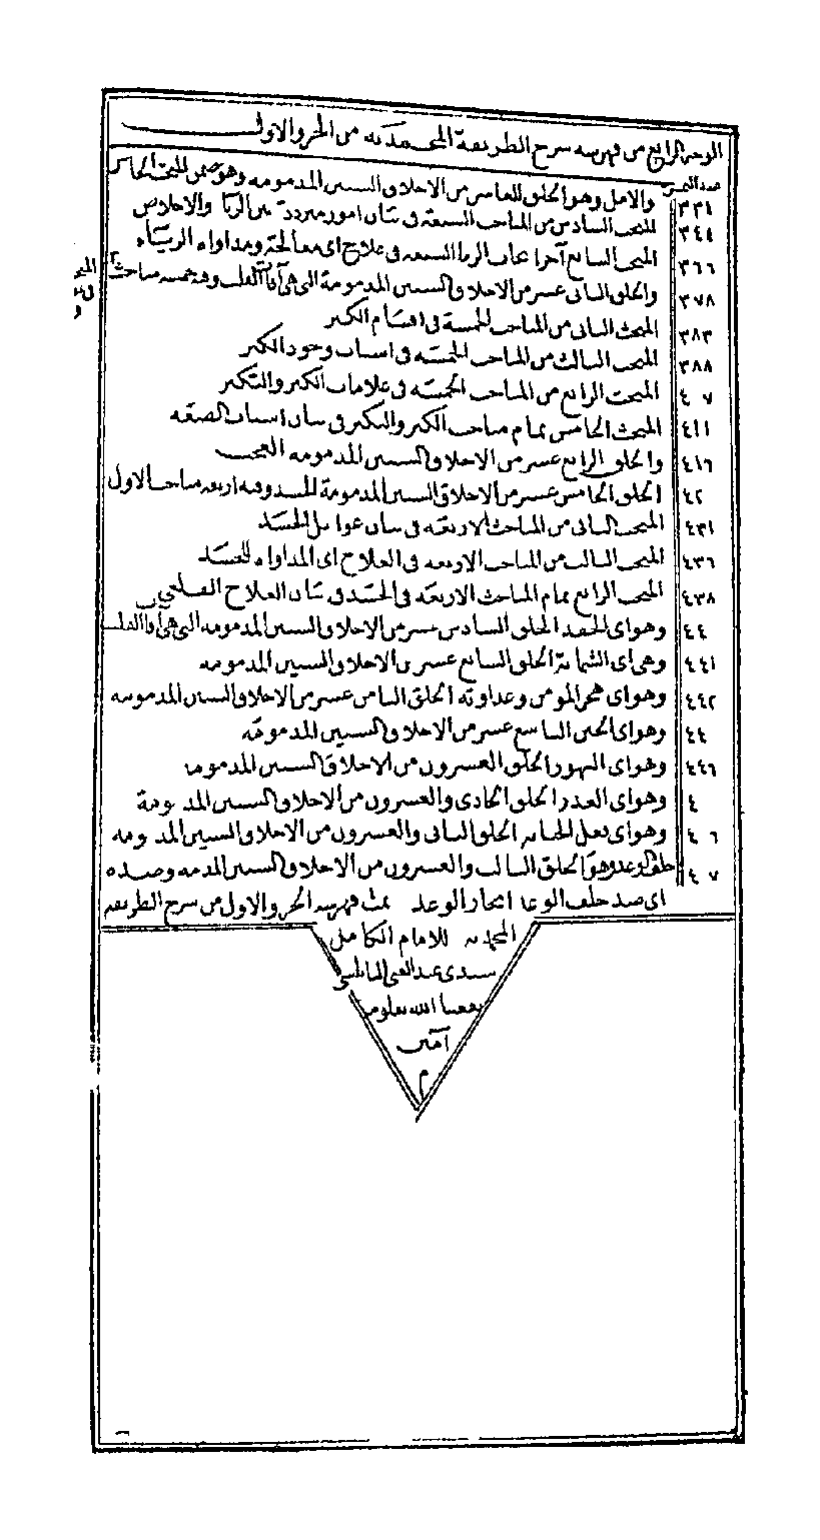 الوجه الرابع من فهرسة شرح الطريقة المحمدية من الجزو الاول
عدد الصحيفة
٣٣٤ والامل وهو الخلق العاشر من الاخلاق الستين المذمومة وهو ضمن المبحث الخامس
٣٤٤ المبحث السادس من المباحث السبعة في بيان امور مترددة بين الريا والاخلاص
٣٦٦ المبحث السابع آخر المباحث السبعة في علاج اى معالجة ومداواة الرياء
٣٧٨ والخلق الثاني عشر من الاخلاق الستين المذمومة التي هي آفات القلب وفيه خمسة مباحث
٣٨٣ المبحث الثاني من المباحث الخمسة في اقسام الكبر
٣٨٨ المبحث الثالث من المباحث الخمسة في اسباب وجود الكبر
٤٠٧ المبحث الرابع من المباحث الخمسة في علامات الكبر والتكبر
٤١١ المبحث الخامس تمام مباحث الكبر والتكبر في بيان اسباب الضعة
٤١٦ والخلق الرابع عشر من الاخلاق الستين المذمومة العجب
٤٢ الخلق الخامس عشر من الاخلاق الستين المذمومة الحسد وفيه اربعة مباحث الاول
٤٣١ المبحث الثاني من المباحث الاربعة في بيان غوائل الحسد
٤٣٦ المبحث الثالث من المباحث الاربعة في العلاج اى المداواة للحسد
٤٣٨ المبحث الرابع تمام المباحث الاربعة في الحسد في بيان العلاج القلعي
٤٤ وهو اى الحقد الخلق السادس عشر من الاخلاق الستين المذمومة التي هي آفات القلب
٤٤١ وهي اى الشماتة الخلق السابع عشر من الاخلاق الستين المذمومة
٤٤٢ وهو اى هجر المؤمن وعداوته الخلق الثامن عشر من الاخلاق الستين المذمومة
٤٤ وهو اى الجبن التاسع عشر من الاخلاق الستين المذمومة
٤٤٦ وهو اى التهور الخلق العشرون من الاخلاق الستين المذمومة
٤ وهو اى الغدر الخلق الحادى والعشرون من الاخلاق الستين المذمومة
٤ ٦ وهو اى فعل الخيانة الخلق الثاني والعشرون من الاخلاق الستين المذمومة
٤ ٧ خلف الوعد وهو الخلق الثالث والعشرون من الاخلاق الستين المذمة وضده
اى ضد خلف الوعد انجاز الوعد تمت فهرسة الجزو الاول من شرح الطريقة
المحمدية للامام الكامل
سيدى عبد الغني النابلسي
نفعنا الله بعلومه
آمين
م